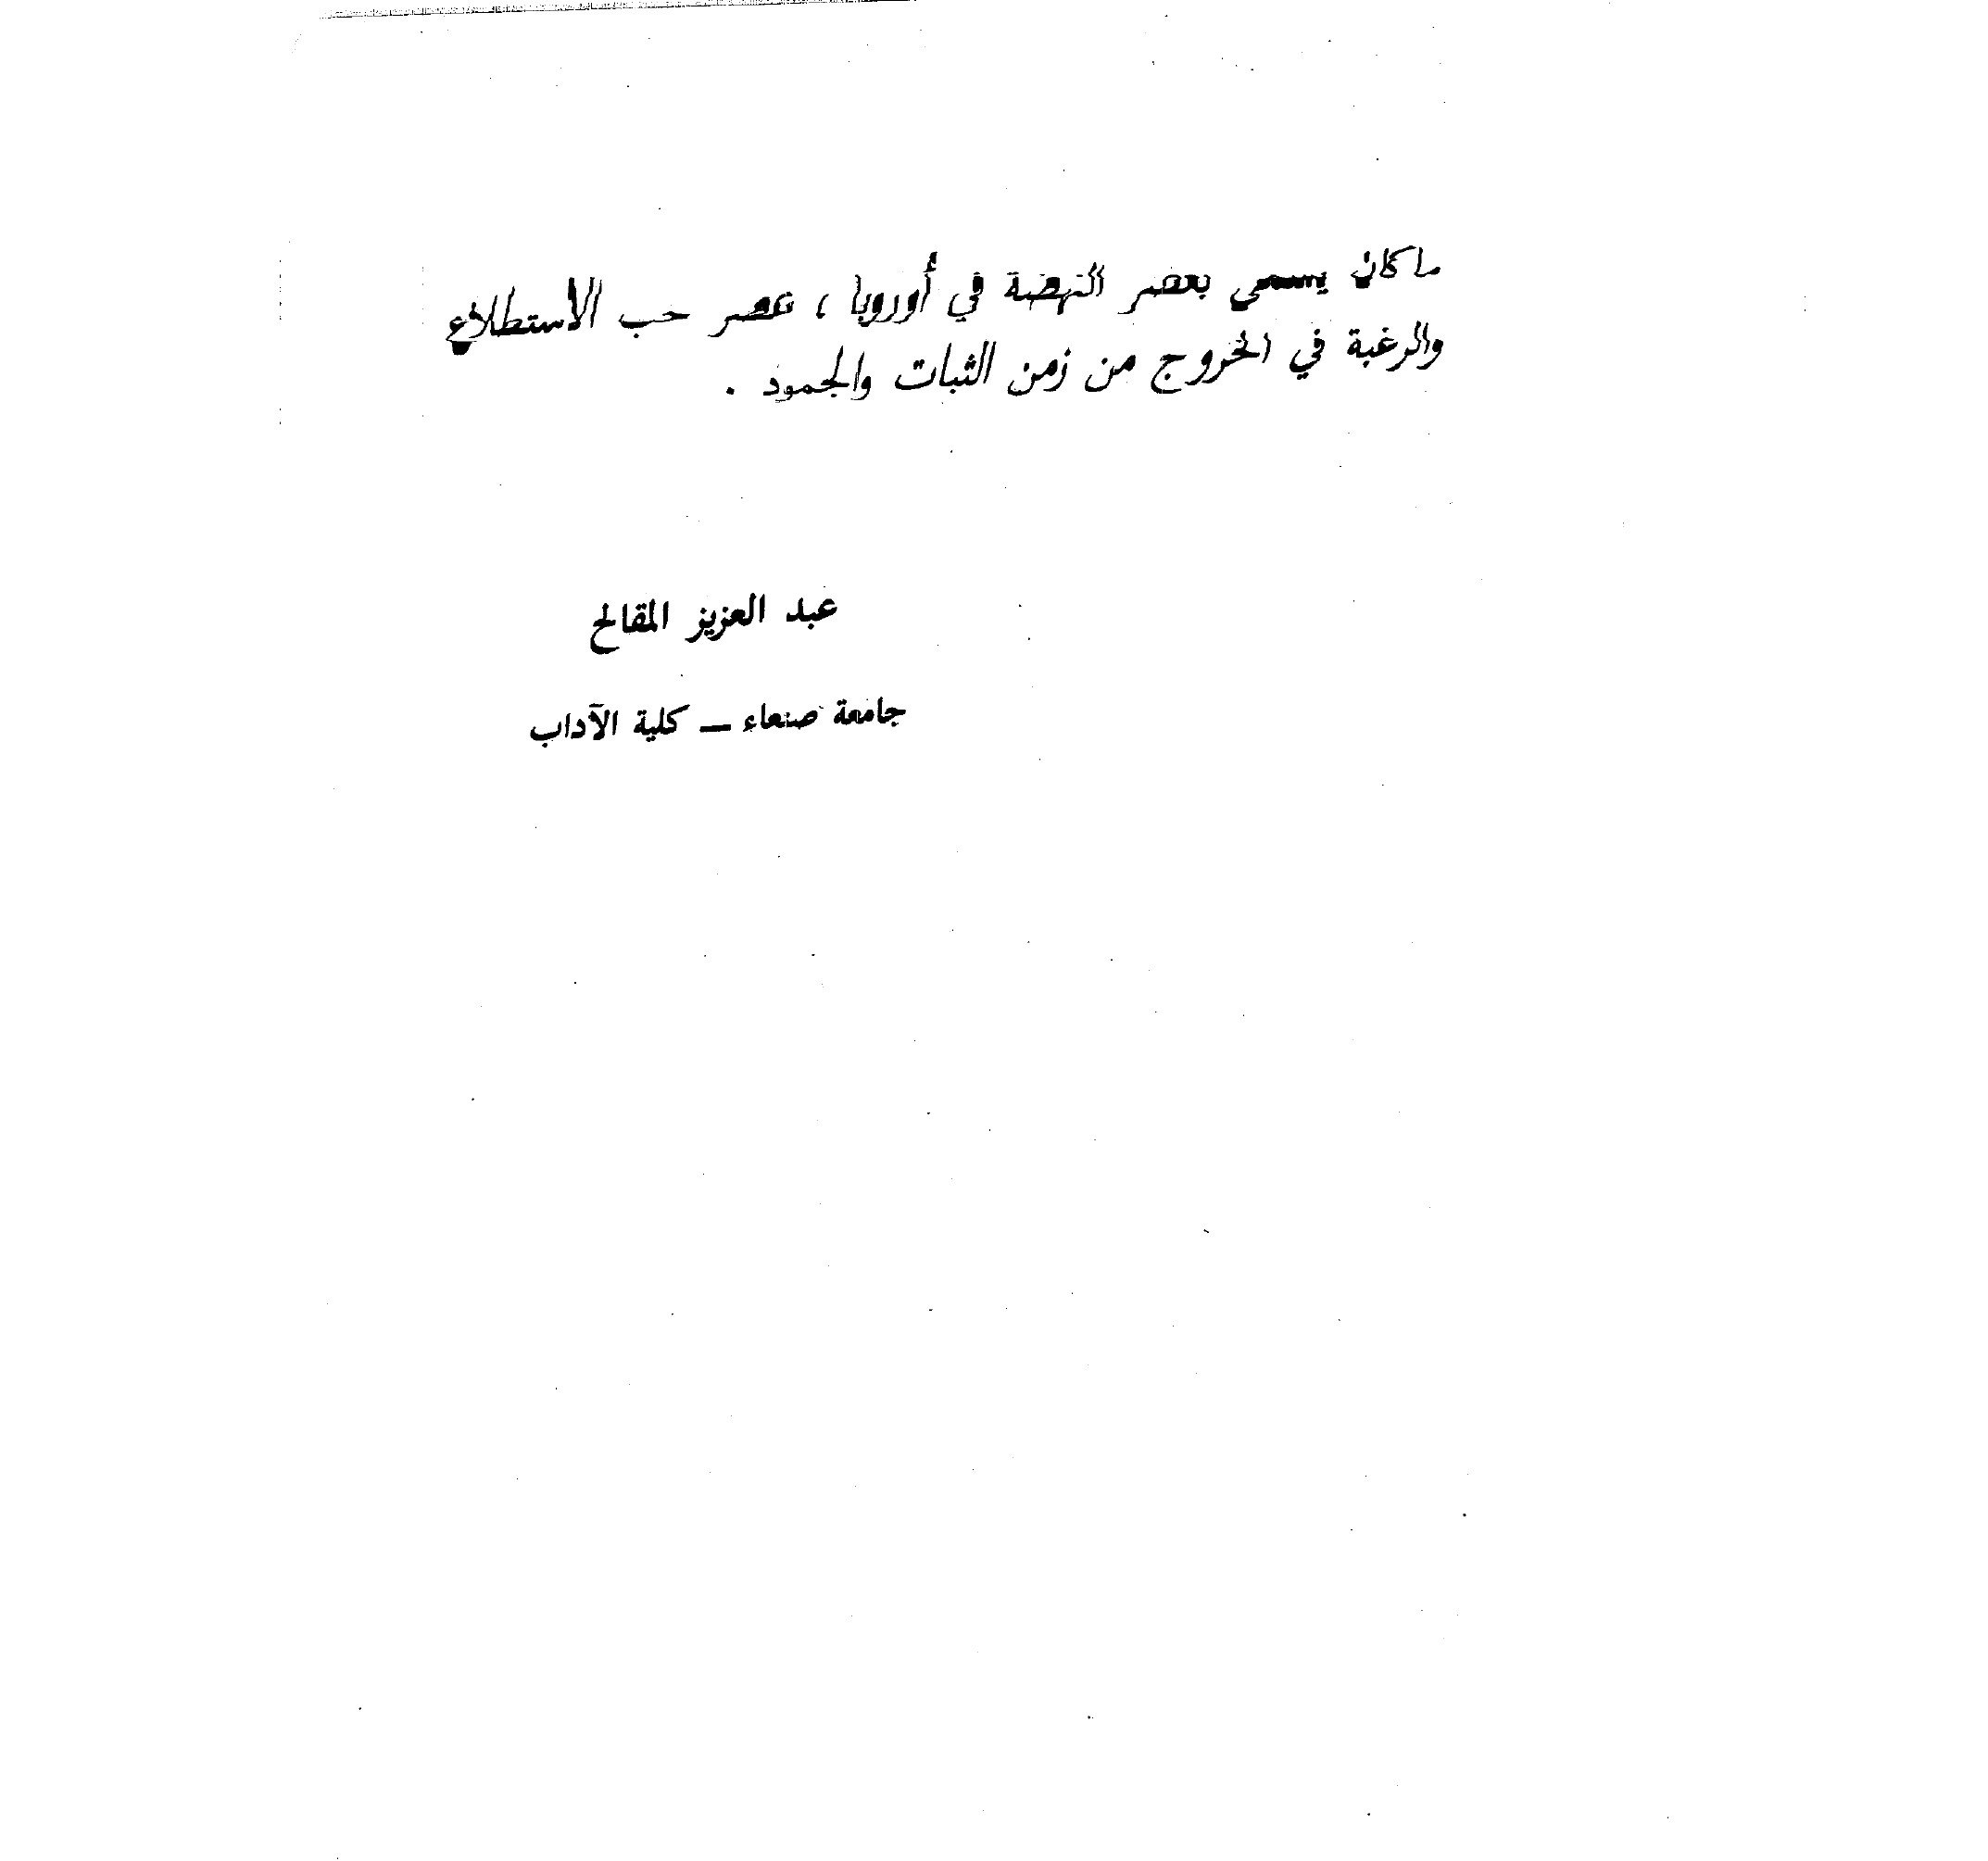 ما كان يسمى بعصر النهضة في أوروبا ، عصر حب الاستطلاع
والرغبة في الخروج من زمن الثبات والجمود .
عبد العزيز المقالح
جامعة صنعاء — كلية الآداب